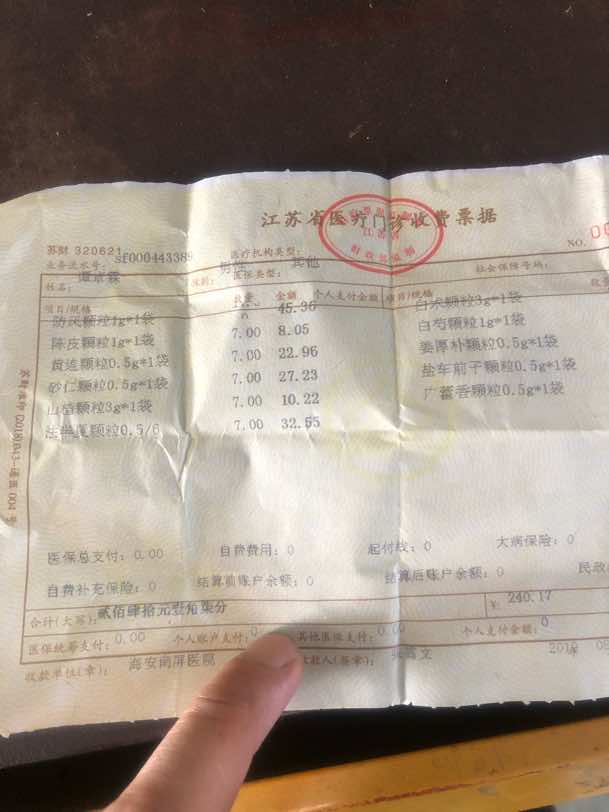 江苏省医疗门诊收费票据
苏财 320621
业务流水号： sf000443389
医疗机构类型：
NO.
姓名：
性别： 男性
医保类型： 其他
社会保障号码：
项目/规格 数量 金额 个人支付金额 项目/规格
防风颗粒1g*1袋 45.36 白术颗粒3g*1袋
陈皮颗粒1g*1袋 7.00 8.05 白芍颗粒1g*1袋
黄连颗粒0.5g*1袋 7.00 22.96 姜厚朴颗粒0.5g*1袋
砂仁颗粒0.5g*1袋 7.00 27.23 盐车前子颗粒0.5g*1袋
山药颗粒3g*1袋 7.00 10.22 广藿香颗粒0.5g*1袋
法半夏颗粒0.5/6 7.00 32.55
医保总支付：0.00 自费费用：0 起付线：0 大病保险：0
自费补充保险：0 结算前账户余额：0 结算后账户余额：0 民政
合计(大写)： 贰佰肆拾元壹角柒分 ¥: 240.17
医保统筹支付：0.00 个人账户支付：0 其他医保支付：0.00 个人支付金额：0
收款单位(章)： 海安南屏医院 收款人(签章)：